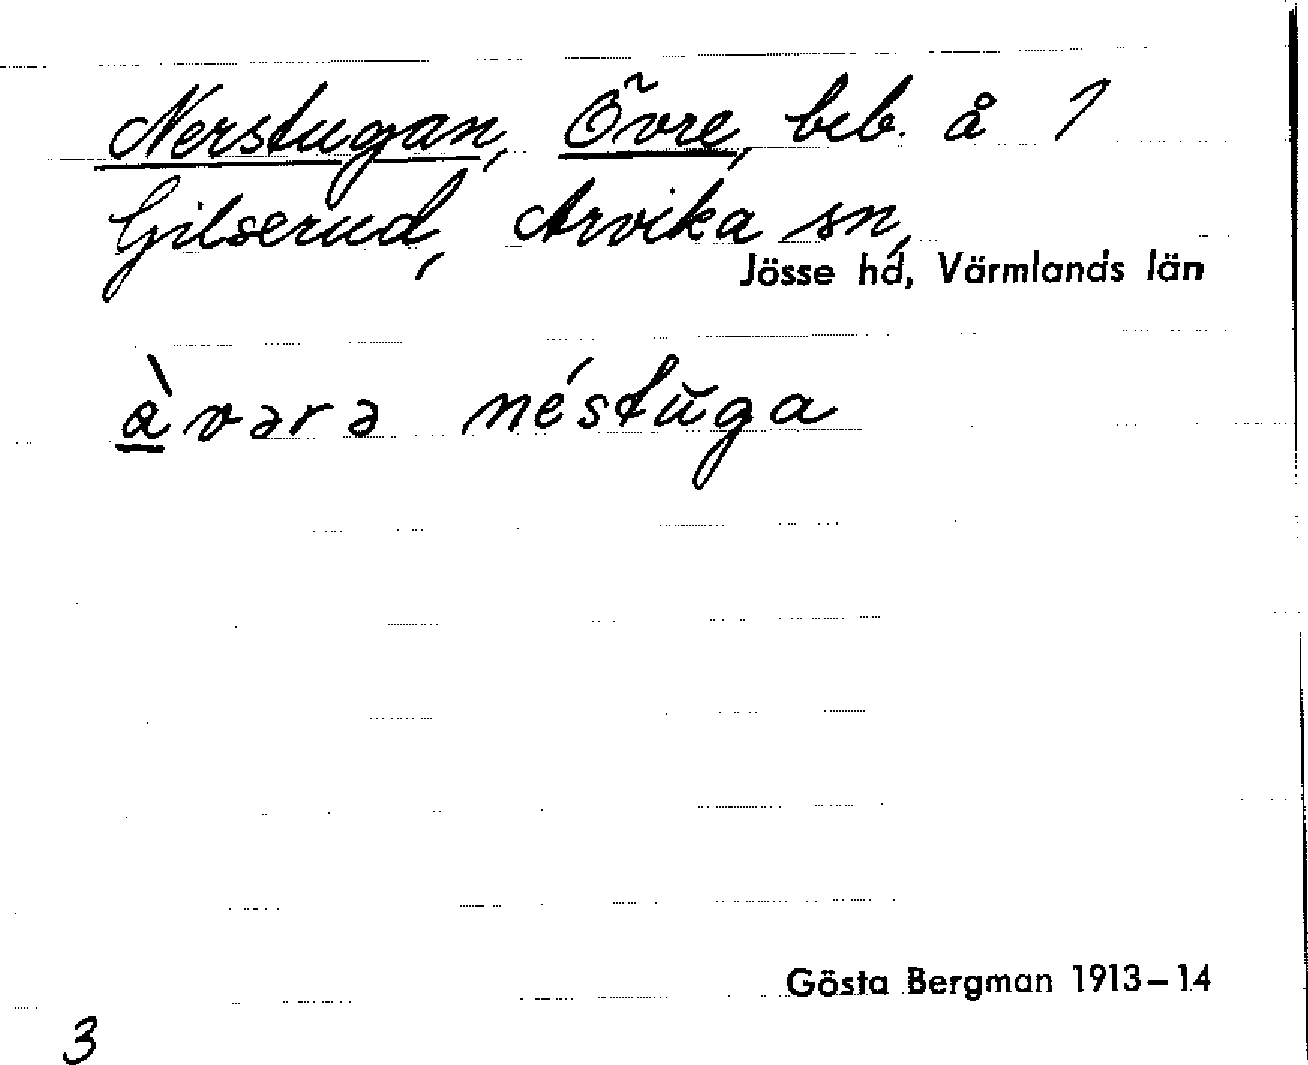 Nerstugan, Övre, beb. å 1
Gilserud, Arvika sn,
Jösse hd, Värmlands län
àvərə néstŭga
Gösta Bergman 1913–14
3